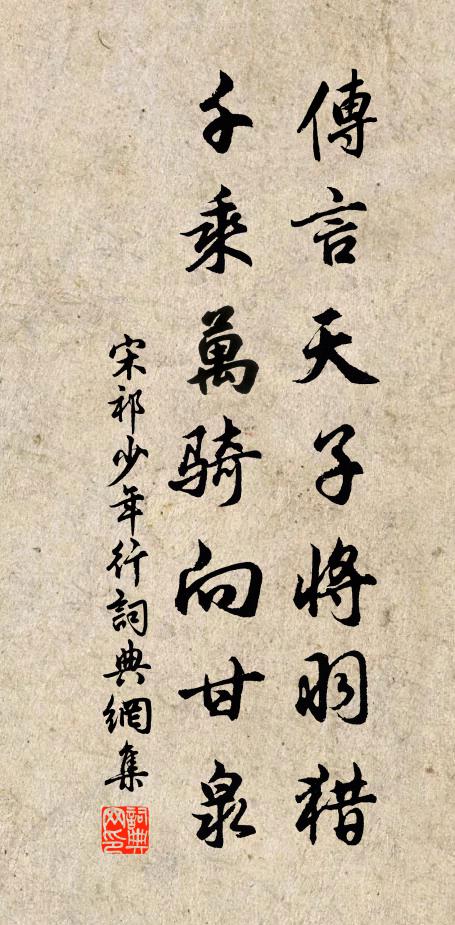 傳言天子將羽猎
千乘萬騎向甘泉
宋祁少年行詞典網集
詞典网印